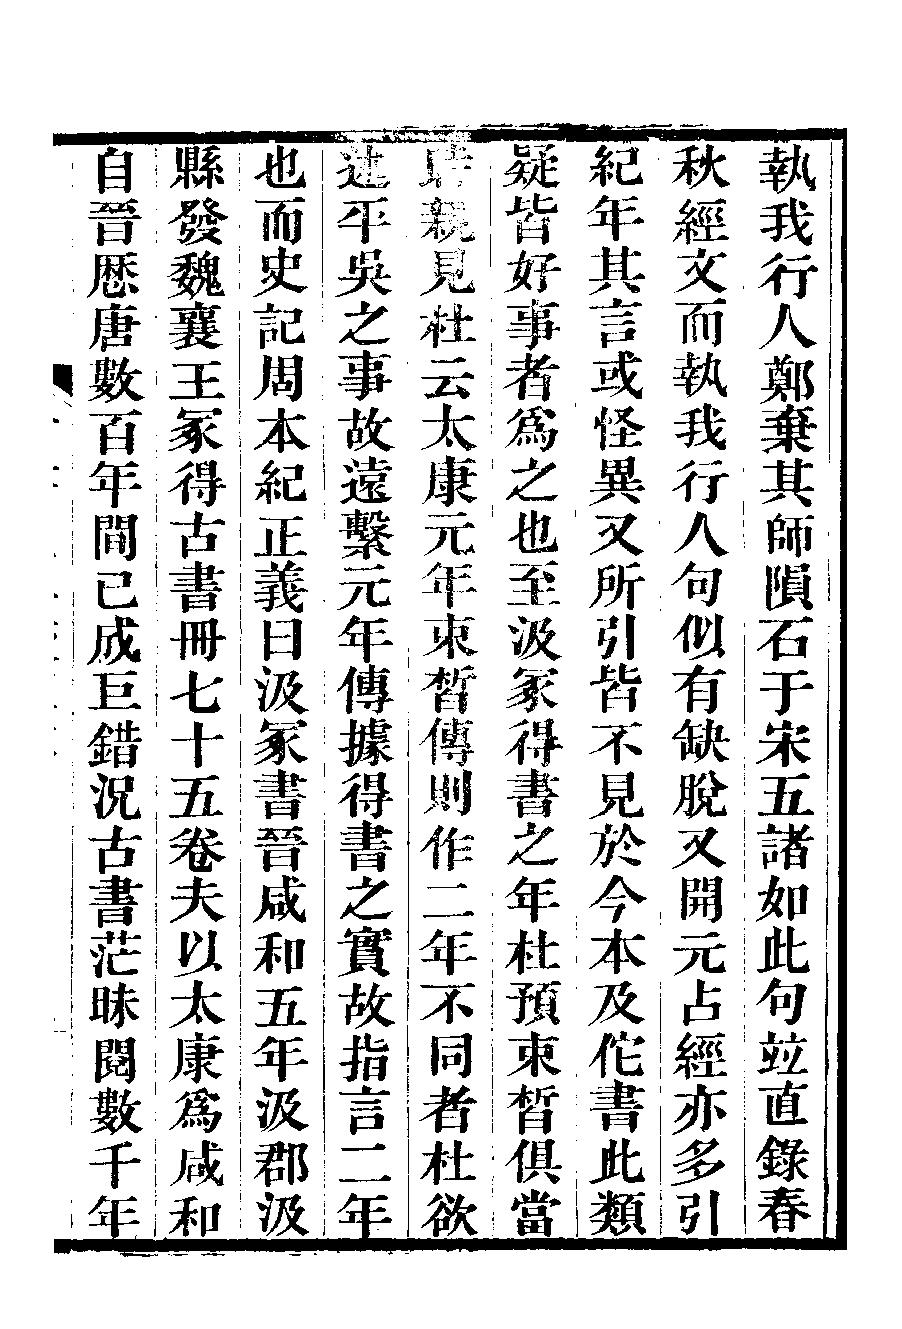 執我行人鄭棄其師隕石于宋五諸如此句竝直錄春
秋經文而執我行人句似有缺脫又開元占經亦多引
紀年其言或怪異又所引皆不見於今本及佗書此類
疑皆好事者爲之也至汲冢得書之年杜預束晳俱當
時親見杜云太康元年束晳傳則作二年不同者杜欲
述平吳之事故遠繫元年傳據得書之實故指言二年
也而史記周本紀正義曰汲冢書晉咸和五年汲郡汲
縣發魏襄王冢得古書冊七十五卷夫以太康爲咸和
自晉厯唐數百年間已成巨錯況古書茫昧閱數千年